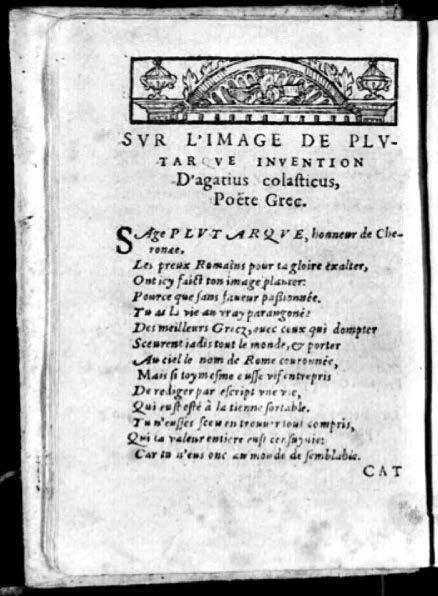 SVR L'IMAGE DE PLV-
TARQVE INVENTION
D'agatius colasticus,
Poëte Grec.
SAge PLVTARQVE, honneur de Che-
ronae,
Les preux Romains pour ta gloire exalter,
Ont icy faict ton image planter:
Pource que sans faueur passionnée.
Tu as la vie au vray parangoné
Des meilleurs Grecz, auec ceux qui dompter
Sceurent iadis tout le monde, & porter
Au ciel le nom de Rome couronnée,
Mais si toymesme eusse vif entrepris
De rediger par escript vne vie,
Qui eust esté à la tienne sortable.
Tu n'eusses sceu en trouuer tout compris,
Qui ta valeur entiere eust
Car tu n'eus onc au monde de semblable.
CAT